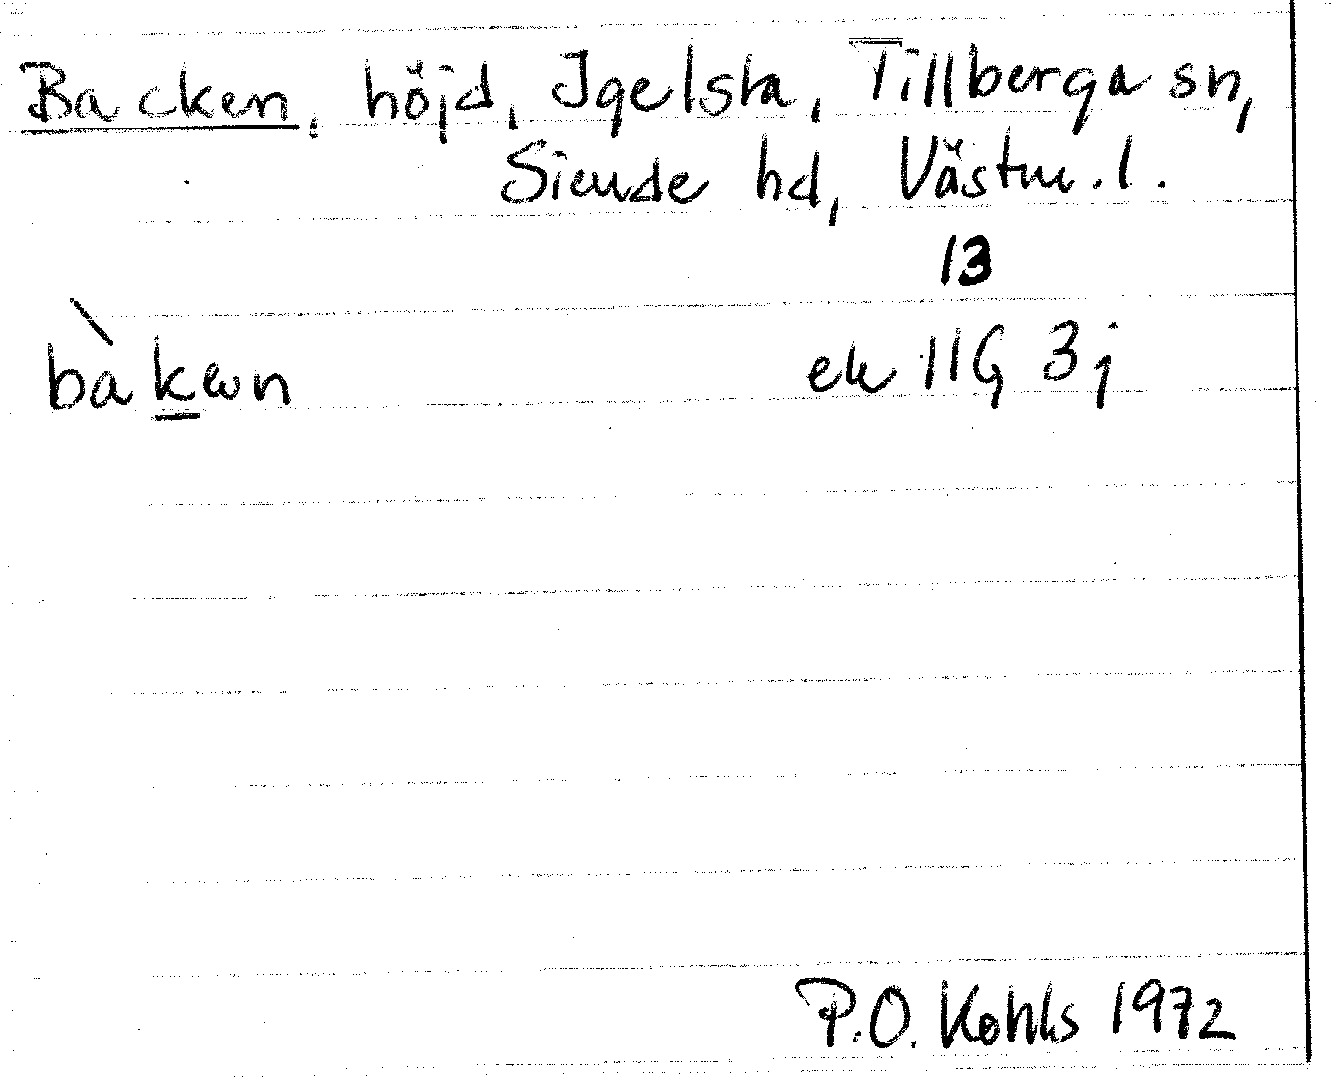 Backen, höjd, Igelsta, Tillberga sn,
Siende hd, Västm. l.
13
ek 11G 3j
P.O. Kohls 1972